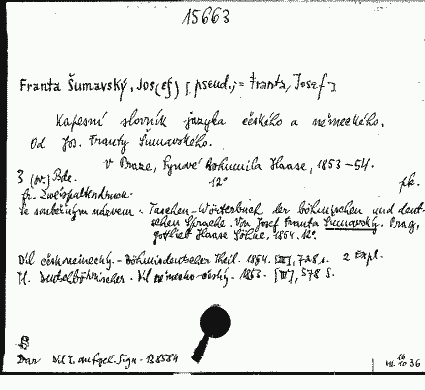 15663
Franta Šumavský, Jos(ef) [pseud.; = Franta, Josef]
Kapesní slovník jazyka českého a německého.
Od Jos. Franty Šumavského.
v Praze, Synové Bohumila Haase, 1853-54.
3 (sv.) 12°
Taschen-Wörterbuch der böhmischen und deut-
schen Sprache. Von Josef Franta Šumavský. Prag,
Gottlieb Haase Söhne, 1854. 12°.
Díl českoněmecký. - Böhmischdeutscher Theil. 1854. 2 Expl.
II. Deutschböhmischer. - Díl německo-český. 1853. 578 S.
Dar Díl I. aufgel. Sign.
36